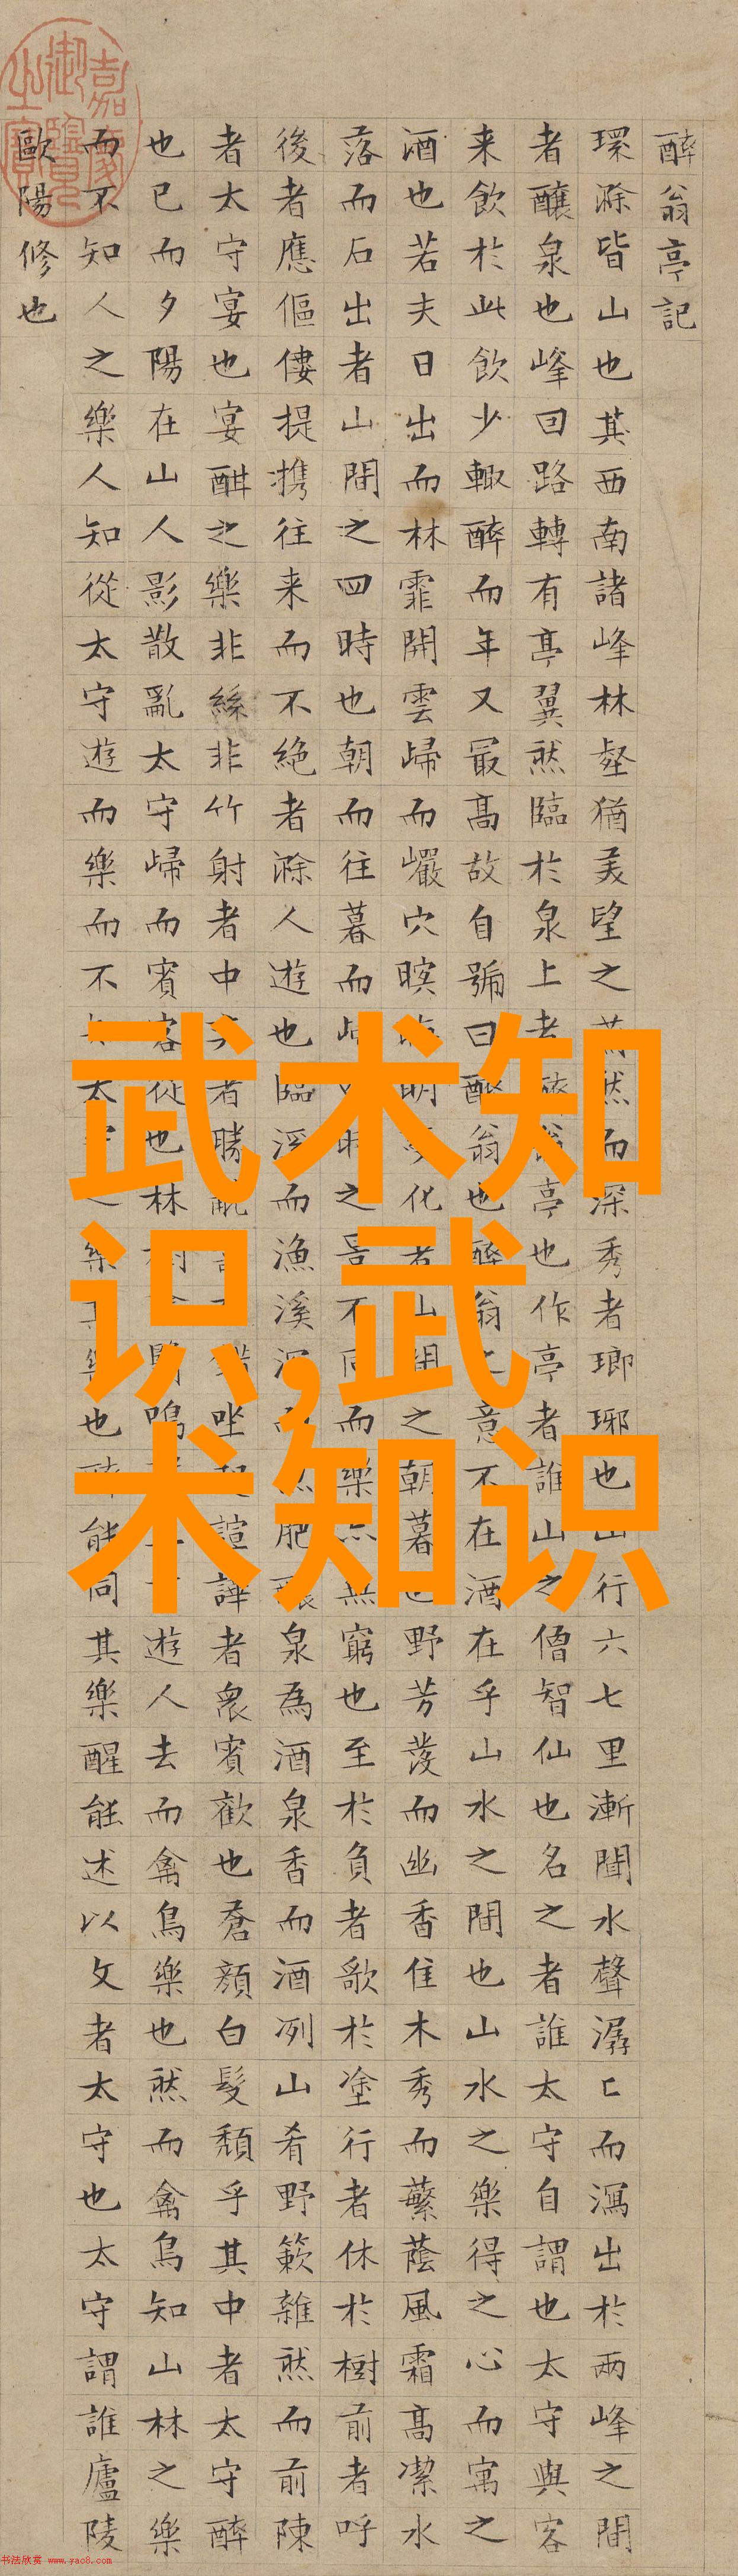 醉翁亭記
環滁皆山也其西南諸峰林壑猶美望之蔚然而深秀者瑯琊也山行六七里漸聞水聲潺匕而瀉出於兩峰之間
者釀泉也峰回路轉有亭翼然臨於泉上者醉翁亭也作亭者誰山之僧智仙也名之者誰太守自謂也太守與客
来飲於此飲少輙醉而年又最高故自號曰醉翁也醉翁之意不在酒在乎山水之間也山水之樂得之心而寓之
酒也若夫日出而林霏開雲歸而巖穴暝晦明化者山間之朝暮也野芳發而幽香佳木秀而蘩蔭風霜高潔水
落而石出者山間之四時也朝而往暮而歸時之景不同而樂亦無窮也至於負者歌於塗行者休於樹前者呼
後者應傴僂提携往来而不絕者滁人遊也臨溪而漁溪深而肥釀泉為酒泉香而酒冽山肴野簌雜然而前陳
者太守宴也宴酣之樂非絲非竹射者中者勝觥錯坐起諠譁者衆賓歡也蒼顏白髮頹乎其中者太守醉
也已而夕陽在山人影散亂太守歸而賓客從也林樹翳鳴遊人去而禽鳥樂也然而禽鳥知山林之樂
而不知人之樂人知從太守遊而樂而不太之樂其樂也醉能同其樂醒能述以文者太守也太守謂誰廬陵
歐陽修也
嘉慶御覽之寶
武术知
识,武
术知识
书法欣赏 www.yac8.com